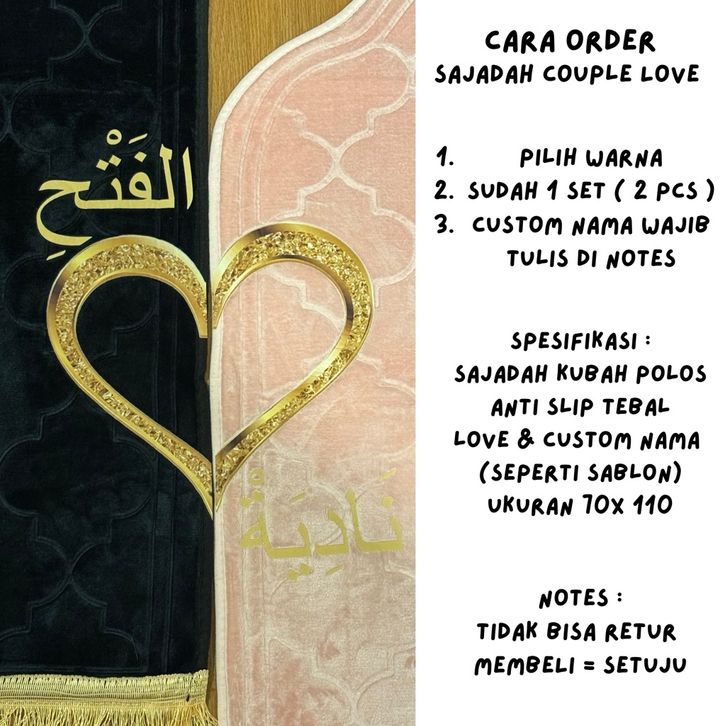 الفَتْحِ
نَادِيَةْ
CARA ORDER
SAJADAH COUPLE LOVE
1. PILIH WARNA
2. SUDAH 1 SET ( 2 PCS )
3. CUSTOM NAMA WAJIB
TULIS DI NOTES
SPESIFIKASI :
SAJADAH KUBAH POLOS
ANTI SLIP TEBAL
LOVE & CUSTOM NAMA
(SEPERTI SABLON)
UKURAN 70X 110
NOTES :
TIDAK BISA RETUR
MEMBELI = SETUJU